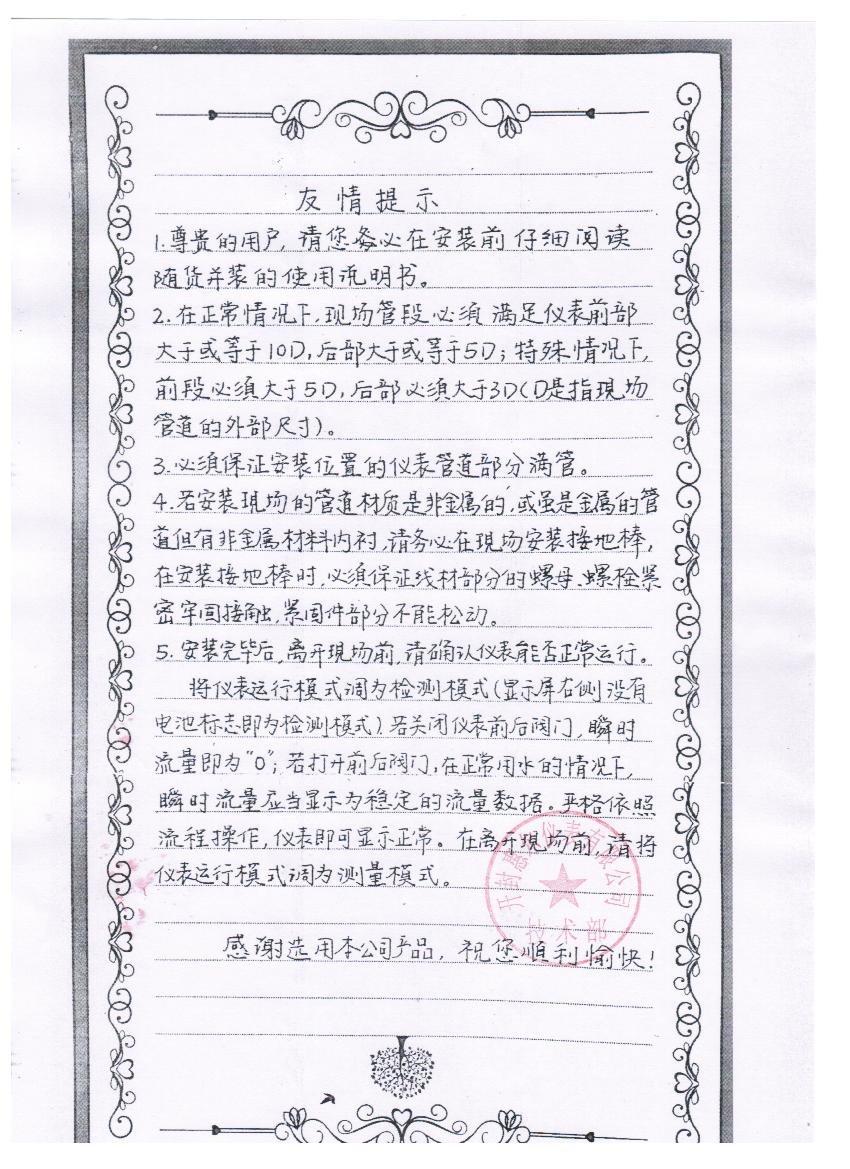 友情提示
1.尊贵的用户,请您务必在安装前仔细阅读
随货并装的使用说明书。
2.在正常情况下,现场管段必须满足仪表前部
大于或等于10D,后部大于或等于5D;特殊情况下,
前段必须大于5D,后部必须大于3D(D是指现场
管道的外部尺寸)。
3.必须保证安装位置的仪表管道部分满管。
4.若安装现场的管道材质是非金属的,或虽是金属的管
道但有非金属材料内衬,请务必在现场安装接地棒,
在安装接地棒时,必须保证线材部分的螺母、螺栓紧
密牢固接触,紧固件部分不能松动。
5.安装完毕后,离开现场前,请确认仪表能否正常运行。
将仪表运行模式调为检测模式(显示屏右侧没有
电池标志即为检测模式)若关闭仪表前后阀门,瞬时
流量即为"0";若打开前后阀门,在正常用水的情况下,
瞬时流量应当显示为稳定的流量数据。严格依照
流程操作,仪表即可显示正常。在离开现场前,请将
仪表运行模式调为测量模式。
开封 仪表有 公司
技术部
感谢选用本公司产品,祝您顺利愉快!